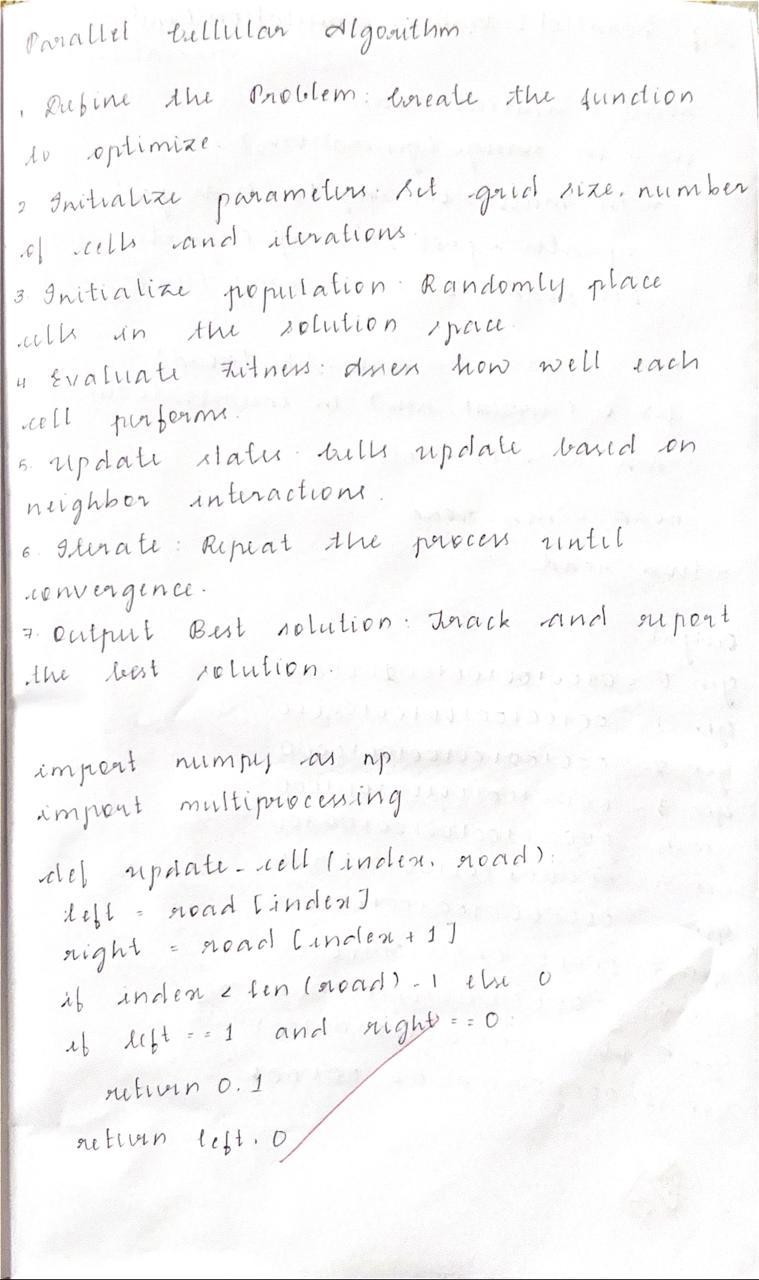 Parallel Cellular Algorithm
1. Define the Problem: Create the function
to optimize.
2 Initialize parameters: Set grid size, number
of cells and iterations.
3. Initialize population: Randomly place
cells in the solution space.
4 Evaluate Fitness: how well each
cell performs.
5. Update states: Cells update based on
neighbor interactions.
6 Iterate: Repeat the process until
convergence.
7. Output Best solution: Track and report
the best solution.
import numpy as np
import multiprocessing
def update_cell (index, road):
left = road [index]
right = road [index + 1]
if index < len (road) - 1 else 0
if left == 1 and right == 0:
return 0, 1
return left, 0